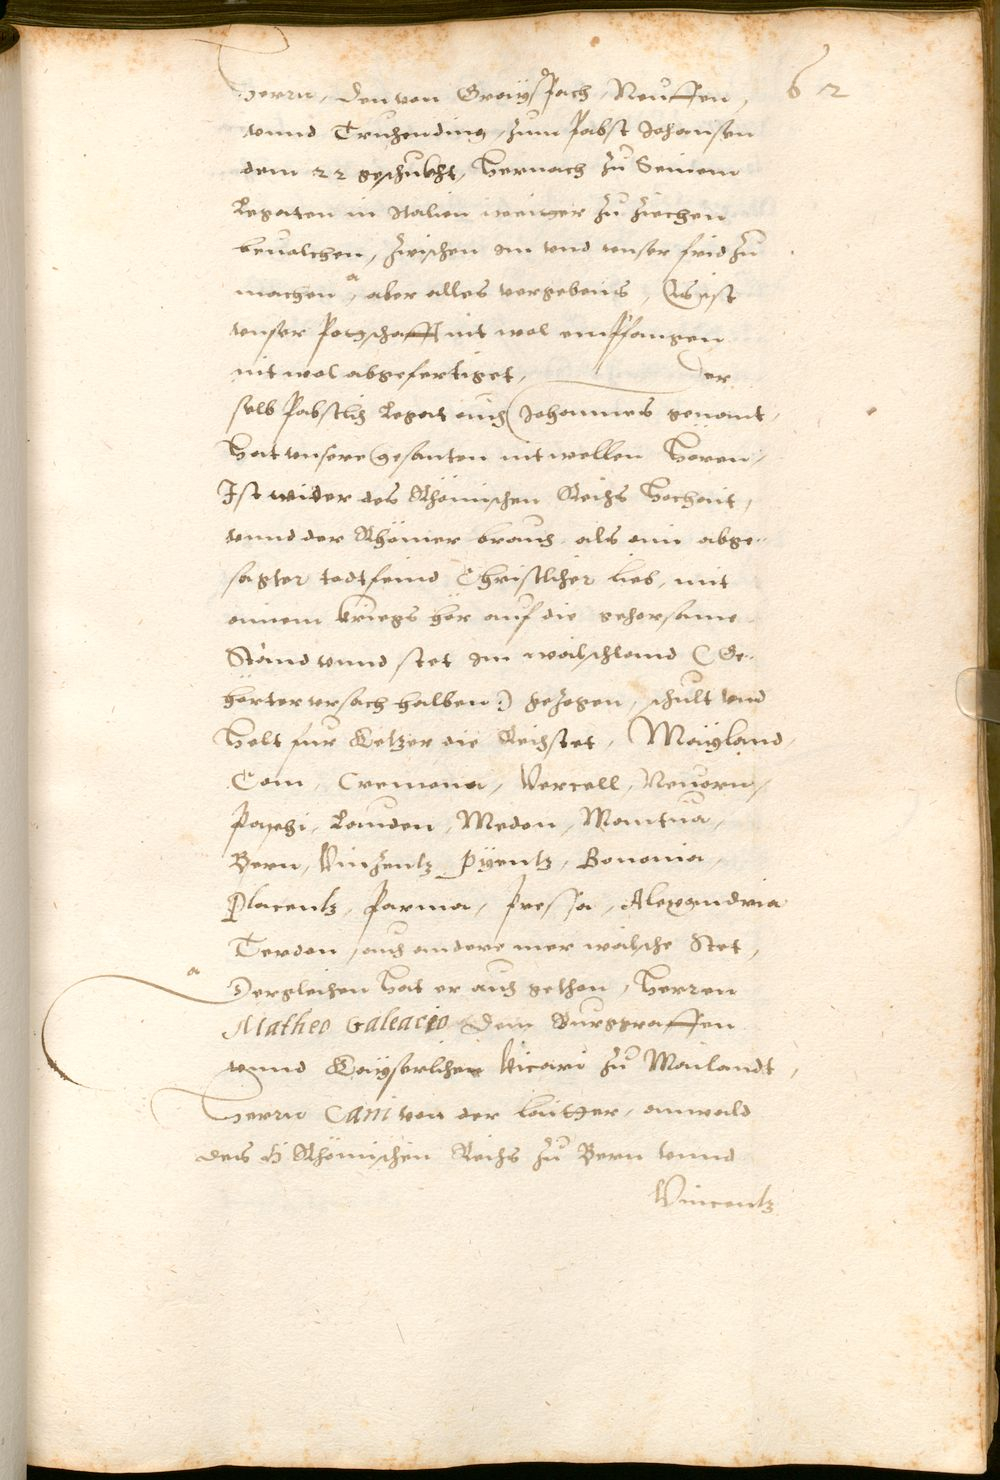 62
Herrn, den von Grayspach, Neuffen,
vnnd Truhending, zum Pabst Johansen
dem 22 geschickht, hernach zu Seinem
Legaten in Italien weitter zu ziechen
beuolchen, zwischen im vnd vnser frid zu
machen, a aber alles vergebens, Es ist
vnser Potschafft nit wol empfangen
nit wol abgefertiget, der
selb Pabstlich Legat auch Johannes genant,
hat vnsere Gesanten nit wellen hören,
Ist wider des Rhömischen Reichs hochait,
vnnd der Rhömer brauch, als ein abge-
sagter todtfeind Christlicher lieb, mit
einem kriegs hör auf die gehorsame
Stand vnnd stet im walschland (Ge-
hörter vrsach halben) gezogen, schilt vnd
helt fur Ketzer die Reichstet, Mayland,
Com, Cremona, Vercell, Neuern,
Paphi, Lauden, Meden, Mantua,
Bern, Vinzentz, Pyentz, Bononia,
Placentz, Parma, Pressa, Alexandria
Terdon, auch andere mer walsche Stet,
a Dergleichen hat er auch gethon, Herren
Matheo Galeacio dem Burggraffen
vnnd Kayserlichen Vicari zu Mailandt,
Herrn Cani von der laitter, anwald
des H Rhömischen Reichs zu Bern vnnd
Vincentz